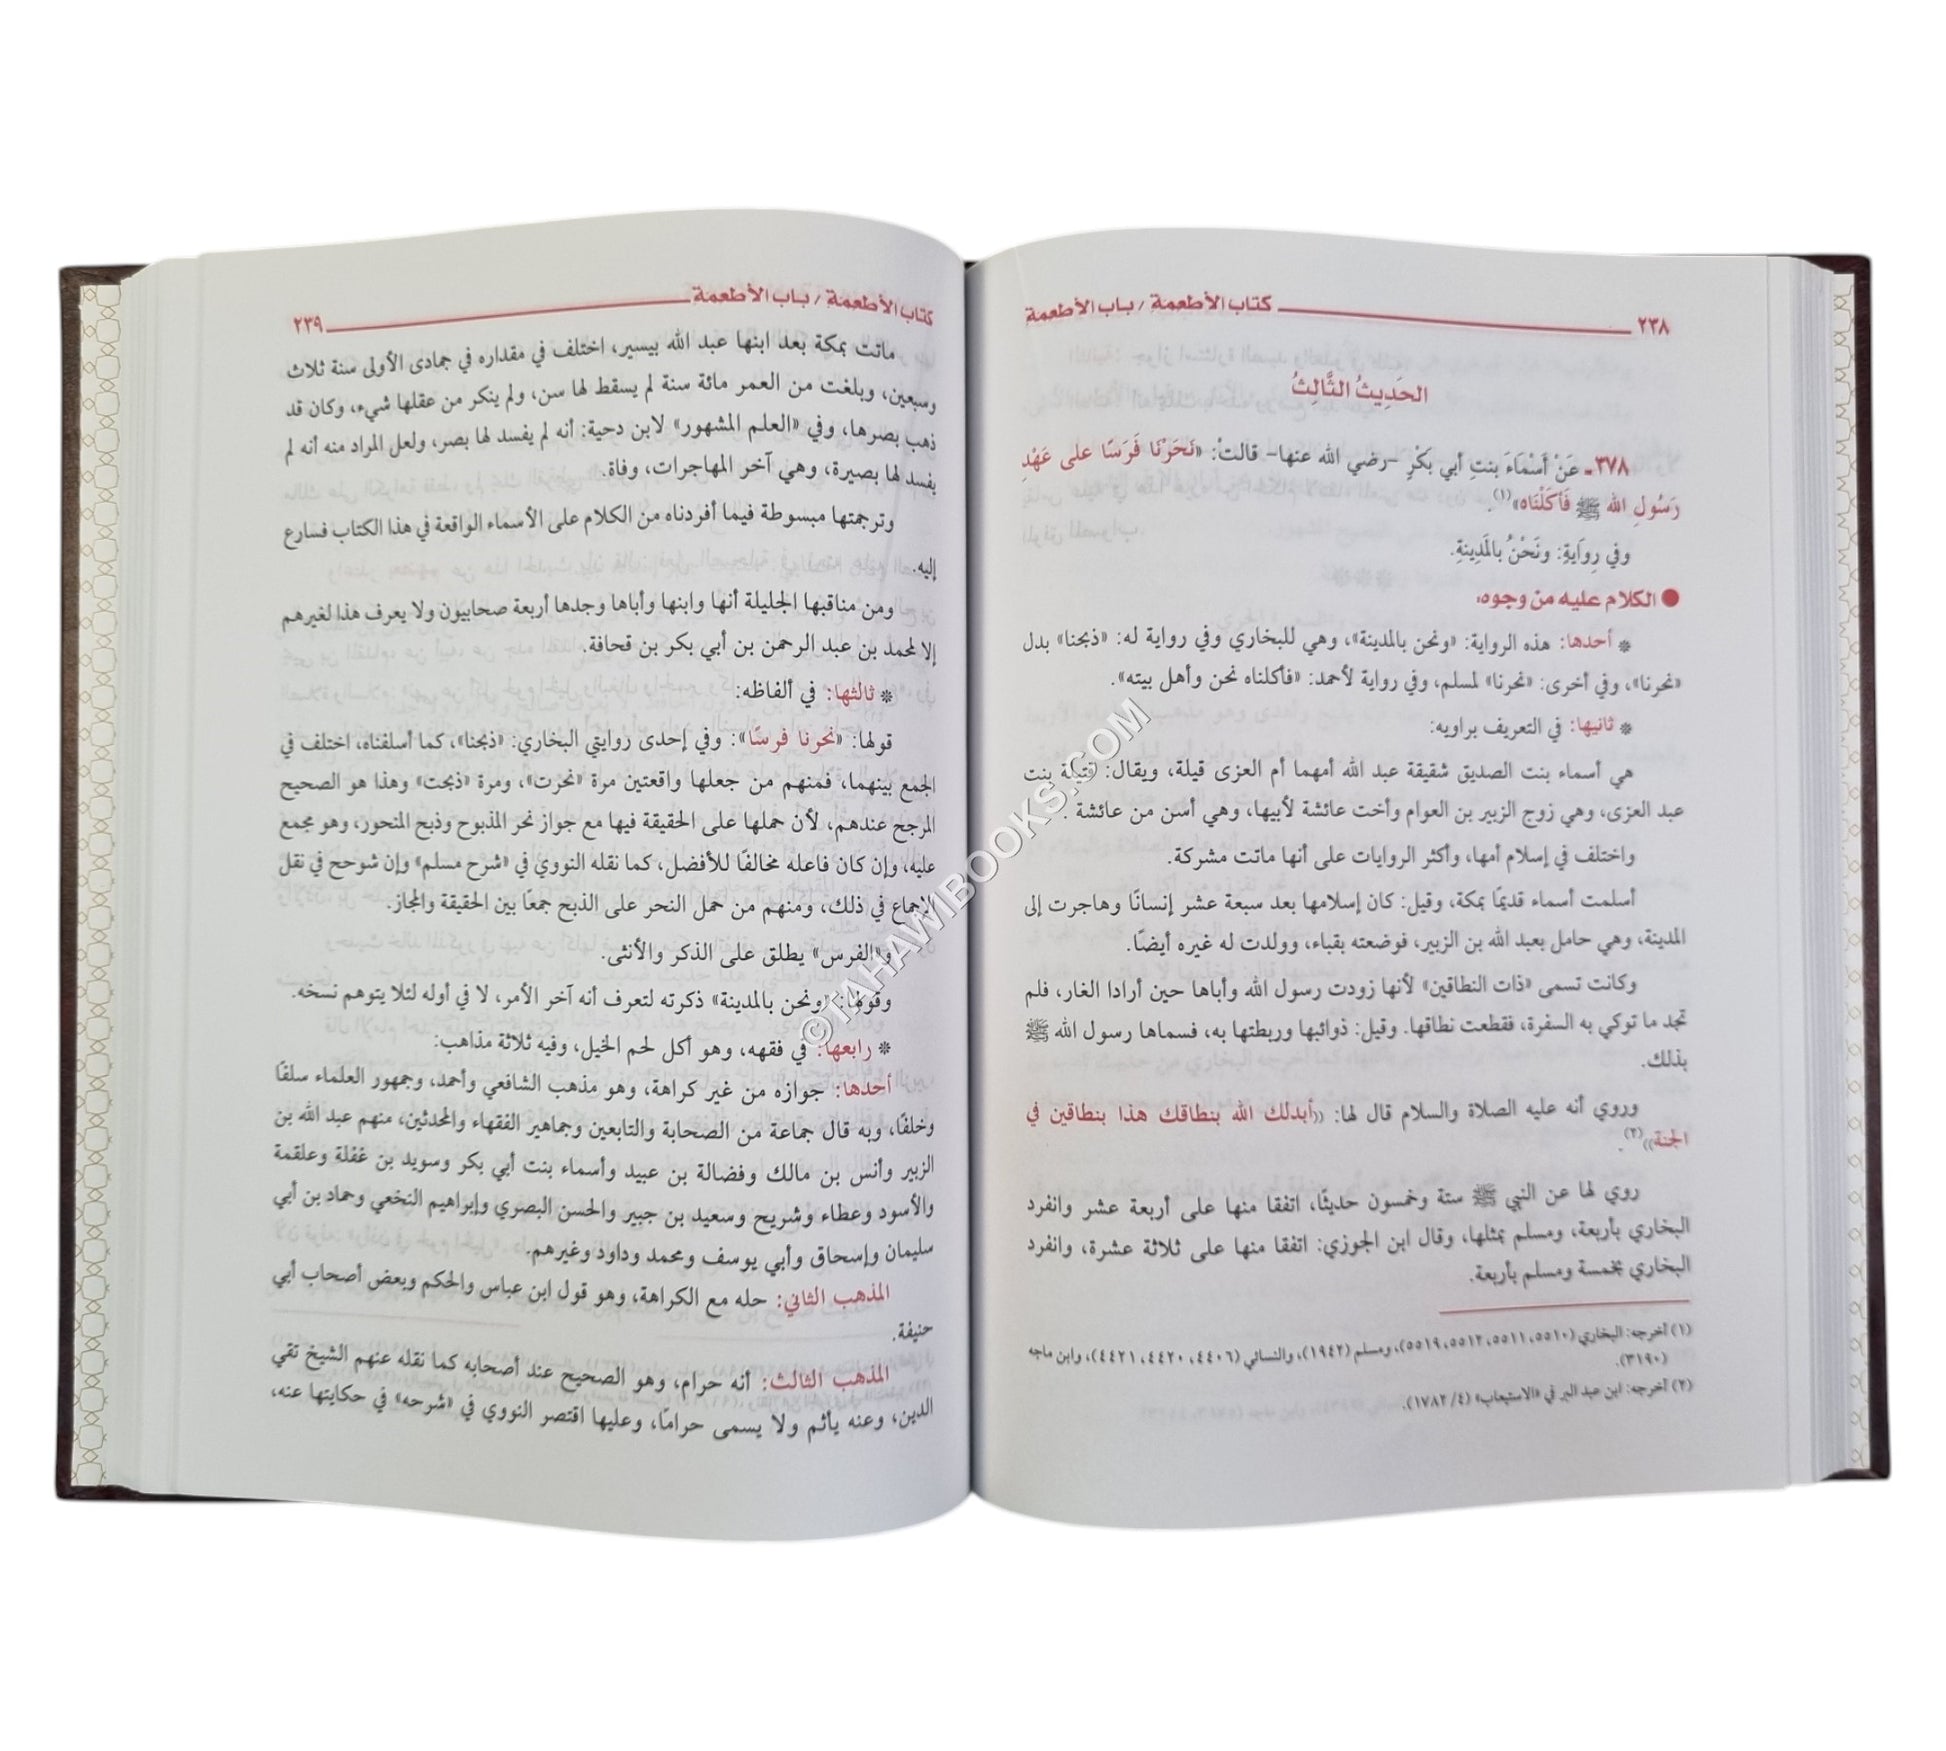 ٢٣٨ كتاب الأطعمة / باب الأطعمة
الحَدِيثُ الثَّالِثُ
٣٧٨ـ عَنْ أَسْمَاءَ بنتِ أبي بَكْرٍ -رضي الله عنها- قالتْ: «نَحَرْنَا فَرَسًا على عَهْدِ
رَسُولِ الله ﷺ فَأَكَلْنَاه»(١).
وفي رِوَايَةٍ: ونَحْنُ بالمَدِينةِ.
● الكلام عليه من وجوه:
* أحدها: هذه الرواية: «ونحن بالمدينة»، وهي للبخاري وفي رواية له: «ذبحنا» بدل
«نحرنا»، وفي أخرى: «نحرنا» لمسلم، وفي رواية لأحمد: «فأكلناه نحن وأهل بيته».
* ثانيها: في التعريف براويه:
هي أسماء بنت الصديق شقيقة عبد الله أمهما أم العزى قيلة، ويقال: قتيلة بنت
عبد العزى، وهي زوج الزبير بن العوام وأخت عائشة لأبيها، وهي أسن من عائشة .
واختلف في إسلام أمها، وأكثر الروايات على أنها ماتت مشركة.
أسلمت أسماء قديمًا بمكة، وقيل: كان إسلامها بعد سبعة عشر إنسانًا وهاجرت إلى
المدينة، وهي حامل بعبد الله بن الزبير، فوضعته بقباء، وولدت له غيره أيضًا.
وكانت تسمى «ذات النطاقين» لأنها زودت رسول الله وأباها حين أرادا الغار، فلم
تجد ما توكي به السفرة، فقطعت نطاقها. وقيل: ذوائبها وربطتها به، فسماها رسول الله ﷺ
بذلك.
وروي أنه عليه الصلاة والسلام قال لها: ((أبدلك الله بنطاقك هذا بنطاقين في
الجنة))(٢).
روي لها عن النبي ﷺ ستة وخمسون حديثًا، اتفقا منها على أربعة عشر وانفرد
البخاري بأربعة، ومسلم بمثلها، وقال ابن الجوزي: اتفقا منها على ثلاثة عشرة، وانفرد
البخاري بخمسة ومسلم بأربعة.
(١) أخرجه: البخاري (٥٥١٠، ٥٥١١، ٥٥١٢، ٥٥١٩)، ومسلم (١٩٤٢)، والنسائي (٤٤٠٦، ٤٤٢٠، ٤٤٢١)، وابن ماجه
(٣١٩٠).
(٢) أخرجه: ابن عبد البر في «الاستيعاب» (٤/ ١٧٨٢).
كتاب الأطعمة / باب الأطعمة ٢٣٩
ماتت بمكة بعد ابنها عبد الله بيسير، اختلف في مقداره في جمادى الأولى سنة ثلاث
وسبعين، وبلغت من العمر مائة سنة لم يسقط لها سن، ولم ينكر من عقلها شيء، وكان قد
ذهب بصرها، وفي «العلم المشهور» لابن دحية: أنه لم يفسد لها بصر، ولعل المراد منه أنه لم
يفسد لها بصيرة، وهي آخر المهاجرات، وفاة.
وترجمتها مبسوطة فيما أفردناه من الكلام على الأسماء الواقعة في هذا الكتاب فسارع
إليه.
ومن مناقبها الجليلة أنها وابنها وأباها وجدها أربعة صحابيون ولا يعرف هذا لغيرهم
إلا لمحمد بن عبد الرحمن بن أبي بكر بن قحافة.
* ثالثها: في ألفاظه:
قولها: «نحرنا فرسًا»: وفي إحدى روايتي البخاري: «ذبحنا»، كما أسلفناه، اختلف في
الجمع بينهما، فمنهم من جعلها واقعتين مرة «نحرت»، ومرة «ذبحت» وهذا هو الصحيح
المرجح عندهم، لأن حملها على الحقيقة فيها مع جواز نحر المذبوح وذبح المنحور، وهو مجمع
عليه، وإن كان فاعله مخالفًا للأفضل، كما نقله النووي في «شرح مسلم» وإن شوحح في نقل
الإجماع في ذلك، ومنهم من حمل النحر على الذبح جمعًا بين الحقيقة والمجاز.
و«الفرس» يطلق على الذكر والأنثى.
وقولها: «ونحن بالمدينة» ذكرته لتعرف أنه آخر الأمر، لا في أوله لئلا يتوهم نسخه.
* رابعها: في فقهه، وهو أكل لحم الخيل، وفيه ثلاثة مذاهب:
أحدها: جوازه من غير كراهة، وهو مذهب الشافعي وأحمد، وجمهور العلماء سلفًا
وخلفًا، وبه قال جماعة من الصحابة والتابعين وجماهير الفقهاء والمحدثين، منهم عبد الله بن
الزبير وأنس بن مالك وفضالة بن عبيد وأسماء بنت أبي بكر وسويد بن غفلة وعلقمة
والأسود وعطاء وشريح وسعيد بن جبير والحسن البصري وإبراهيم النخعي وحماد بن أبي
سليمان وإسحاق وأبي يوسف ومحمد وداود وغيرهم.
المذهب الثاني: حله مع الكراهة، وهو قول ابن عباس والحكم وبعض أصحاب أبي
حنيفة.
المذهب الثالث: أنه حرام، وهو الصحيح عند أصحابه كما نقله عنهم الشيخ تقي
الدين، وعنه يأثم ولا يسمى حرامًا، وعليها اقتصر النووي في «شرحه» في حكايتها عنه،
©TAHAWIBOOKS.COM